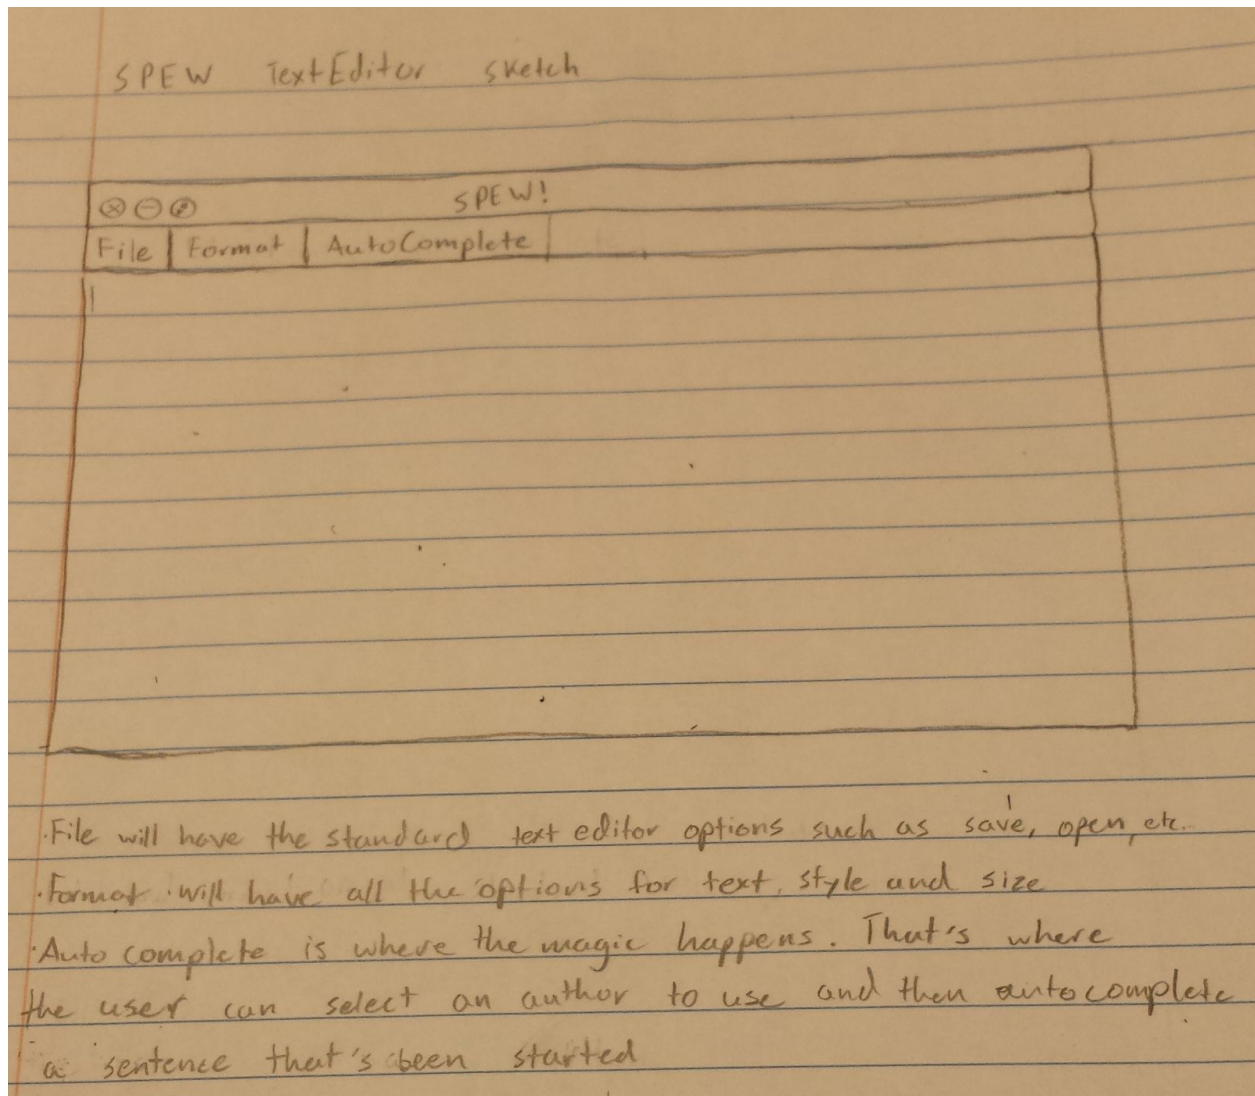 SPEW TextEditor Sketch
SPEW!
File Format AutoComplete
·File will have the standard text editor options such as save, open, etc.
·Format will have all the options for text, style and size
·Auto complete is where the magic happens. That's where
the user can select an author to use and then autocomplete
a sentence that's been started